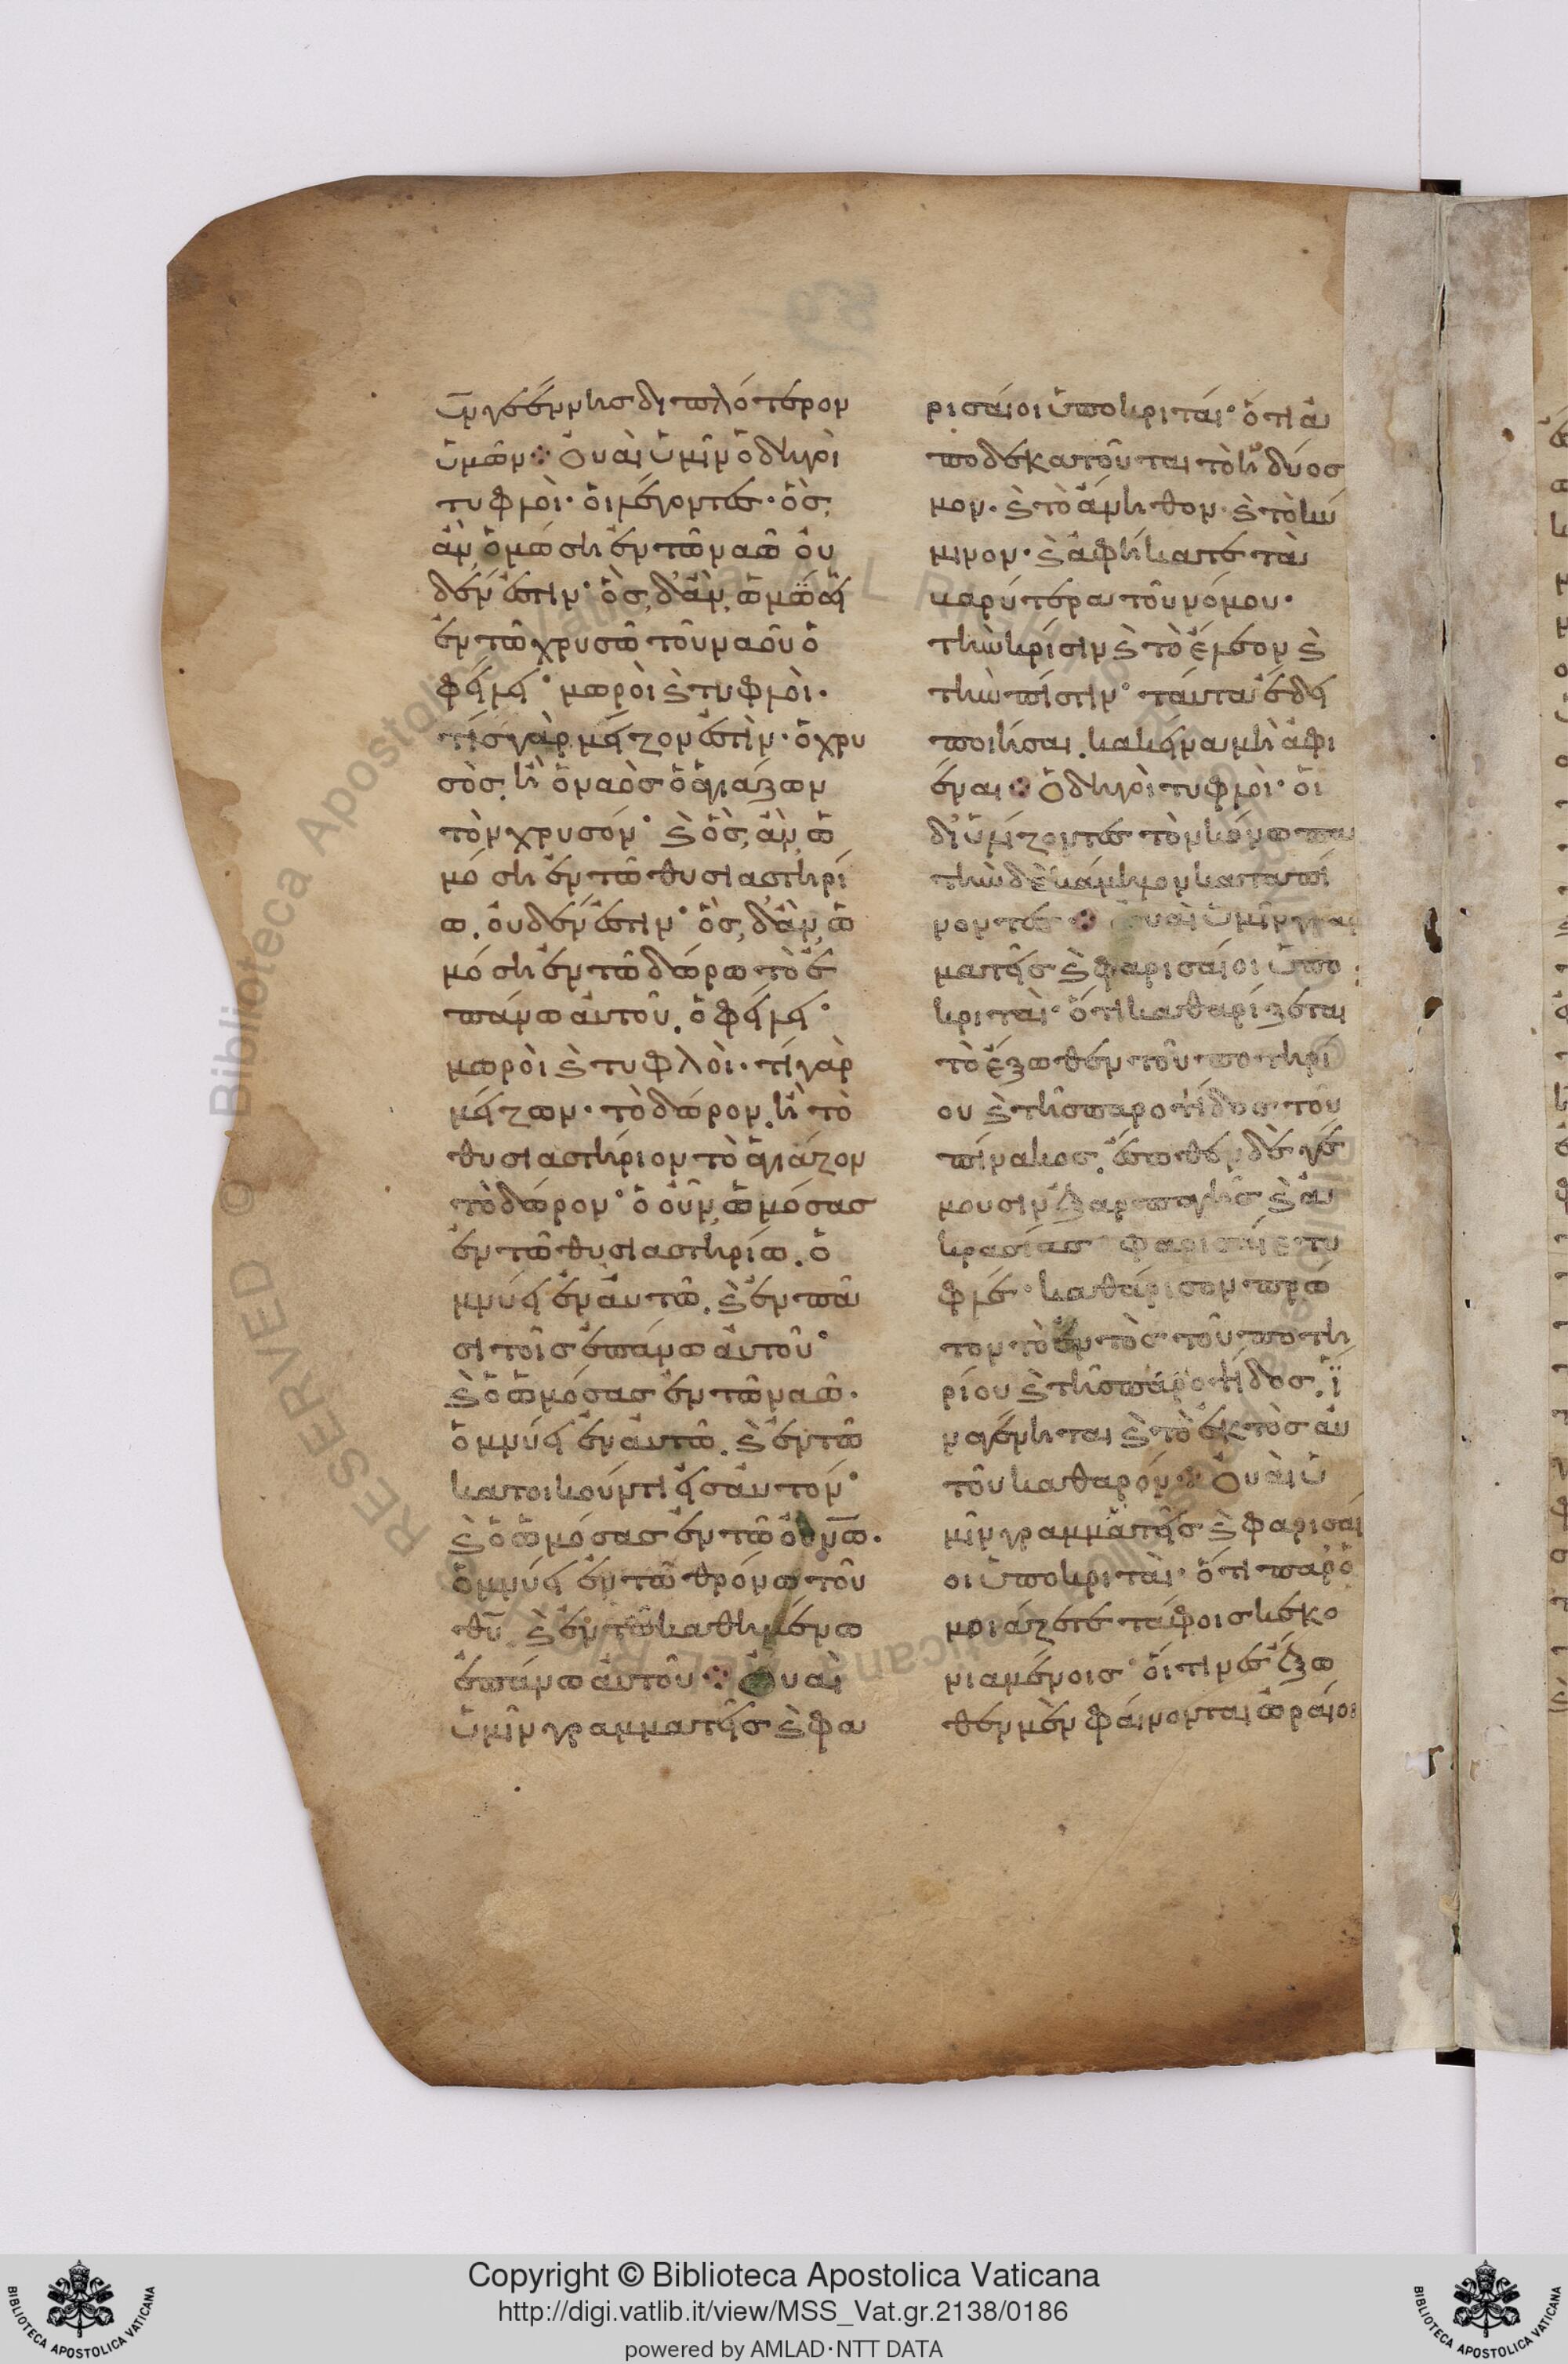 ὑν γεέννης διπλότερον
ὑμῶν · Ὀυαὶ ὑμῖν ὁδηγοὶ
τυφλοὶ · ὁι λέγοντες · ὃς
ἂν ὀμώση ἐν τῶ ναῶ ὀυ
δέν ἐστιν · ὃς δ' ἂν ὠμώσει
ἐν τῶ χρυσῶ τοῦ ναοῦ ὀ
φείλει · μωροὶ ϗ τυφλοὶ ·
τίς γὰρ μείζον ἐστὶν · ὁ χρυ
σὸς, ἢ ὁ ναὸς ὁ ἁγιάζων
τὸν χρυσόν · ϗ ὃς ἂν ὠ
μόση ἐν τῶ θυσιαστηρί
ω, οὐδέν ἐστιν · ὃς δ' ἂν ὠ
μόση ἐν τῶ δώρω τὸ ἐ
πάνω ἀυτοῦ, ὀφείλει ·
μωροὶ ϗ τυφλοὶ · τί γὰρ
μείζων · τὸ δώρον, ἢ τὸ
θυσιαστήριον τὸ ἁγιάζον
τὸ δώρον · ὁ οὖν ὠμόσας
ἐν τῶ θυσιαστηρίω, ὀ
μνύει ἐν ἀυτῶ, ϗ ἐν πᾶ
σι τοῖς ἐπάνω ἀυτοῦ ·
ϗ ὁ ὠμόσας ἐν τῶ ναῶ ·
ὀμνύει ἐν ἀυτῶ, ϗ ἐν τῶ
κατοικούντι εἰς ἀυτόν ·
ϗ ὁ ὠμόσας ἐν τῶ ὀυνῶ ·
ὀμνύει ἐν τῶ θρόνω τοῦ
θυ, ϗ ἐν τῶ καθημένω
ἐπάνω ἀυτοῦ · Ὀυαὶ
ὑμῖν γραμματεῖς ϗ φα
ρισαίοι ὑποκριταί · ὅτι ἀ
ποδεκατοῦται τὸ ἡδύοσ
μον · ϗ τὸ ἄνηθον · ϗ τὸ κύ
μινον · ϗ ἀφήκατε τὰ
βαρύτερα τοῦ νόμου ·
τὴν κρίσιν ϗ τὸ ἔλεον ϗ
τὴν πίστιν · ταύτα ἔδει
ποιῆσαι, κακείνα μὴ ἀφι
έναι · Ὁδηγοὶ τυφλοὶ · ὁι
διϋλίζοντες τὸν κόνωπα
τὴν δὲ κάμηλον καταπί
νοντες · Ὀυαὶ ὑμῖν γραμ
ματεῖς ϗ φαρισαίοι ὑπο
κριταὶ · ὅτι καθαρίζεται
τὸ ἔξωθεν τοῦ ποτηρί
ου ϗ τῆς παροψίδος τοῦ
πίνακος, ἔσωθεν δὲ γέ
μουσιν ἐξ αρπαγῆς ϗ ἀ
κρασίας · Φαρισαίε τυ
φλέ · καθάρισον πρῶ
τον τὸ ἐντὸς τοῦ ποτη
ρίου ϗ τῆς παροψίδος, ἵ
να γένηται ϗ τὸ ἐκτὸς ἀυ
τοῦ καθαρόν · Ὀυαὶ ὑ
μῖν γραμματεῖς ϗ φαρισαί
οι ὑποκριταὶ · ὅτι παρὀ
μοιάζετε τάφοις κεκο
νιαμένοις · ὅιτινες ἔξω
θεν μὲν φαίνονται ὡραίοι
Copyright © Biblioteca Apostolica Vaticana
http://digi.vatlib.it/view/MSS_Vat.gr.2138/0186
powered by AMLAD·NTT DATA
BIBLIOTECA APOSTOLICA VATICANA
BIBLIOTECA APOSTOLICA VATICANA